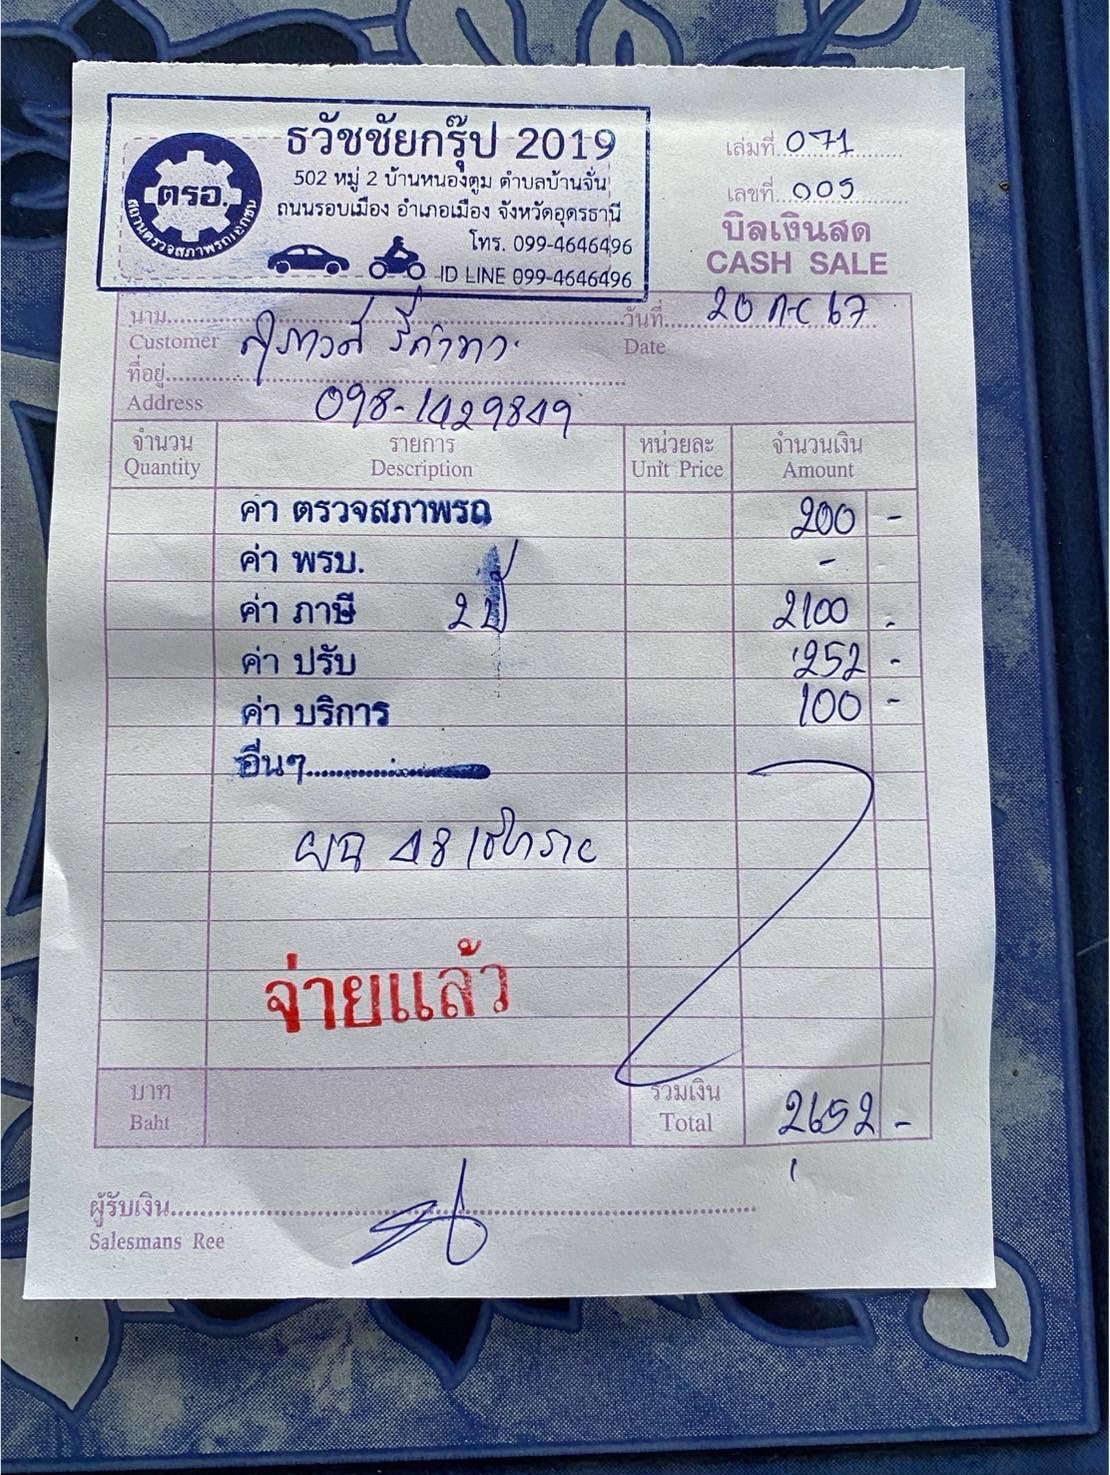 ธวัชชัยกรุ๊ป 2019
502 หมู่ 2 บ้านหนองตูม ตำบลบ้านจั่น
ถนนรอบเมือง อำเภอเมือง จังหวัดอุดรธานี
โทร. 099-4646496
ID LINE 099-4646496
ตรอ.
สถานตรวจสภาพรถเอกชน
เล่มที่ 071
เลขที่ 005
บิลเงินสด
CASH SALE
นาม
Customer
วันที่ 20 กค 67
Date
ที่อยู่
Address 098-1429849
จำนวน รายการ หน่วยละ จำนวนเงิน
Quantity Description Unit Price Amount
ค่า ตรวจสภาพรถ 200 -
ค่า พรบ. -
ค่า ภาษี 2 ปี 2100 -
ค่า ปรับ 252 -
ค่า บริการ 100 -
อื่นๆ
จ่ายแล้ว
บาท รวมเงิน
Baht Total 2652 -
ผู้รับเงิน
Salesmans Ree